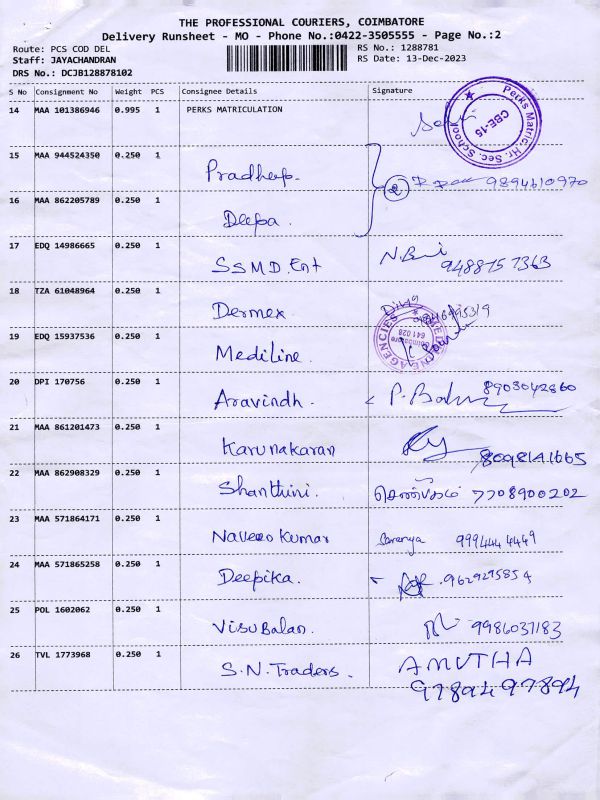 THE PROFESSIONAL COURIERS, COIMBATORE
Delivery Runsheet - MO - Phone No.:0422-3505555 - Page No.:2
Route: PCS COD DEL RS No.: 1288781
Staff: JAYACHANDRAN RS Date: 13-Dec-2023
DRS No.: DCJB128878102
S No Consignment No Weight PCS Consignee Details Signature
14 MAA 101386946 0.995 1 PERKS MATRICULATION
Perks Matric. Hr. Sec. School
CBE-15
15 MAA 944524350 0.250 1 Pradheep. 2 9894610970
16 MAA 862205789 0.250 1 Deepa.
17 EDQ 14986665 0.250 1 SSMD.Ent 9488757363
18 TZA 61048964 0.250 1 Dermex Divya
19 EDQ 15937536 0.250 1 Mediline.
AGENCIES
Coimbatore
641 028
20 DPI 170756 0.250 1 Aravindh. 8903042860
21 MAA 861201473 0.250 1 Karunakaran 8098141665
22 MAA 862908329 0.250 1 Shanthini. செண்பகம் 7708900202
23 MAA 571864171 0.250 1 Naveen Kumar Saranya 9994444449
24 MAA 571865258 0.250 1 Deepika. 9629295854
25 POL 1602062 0.250 1 Visu Balan. 9986037183
26 TVL 1773968 0.250 1 S.N.Traders. AMUTHA
9789497894